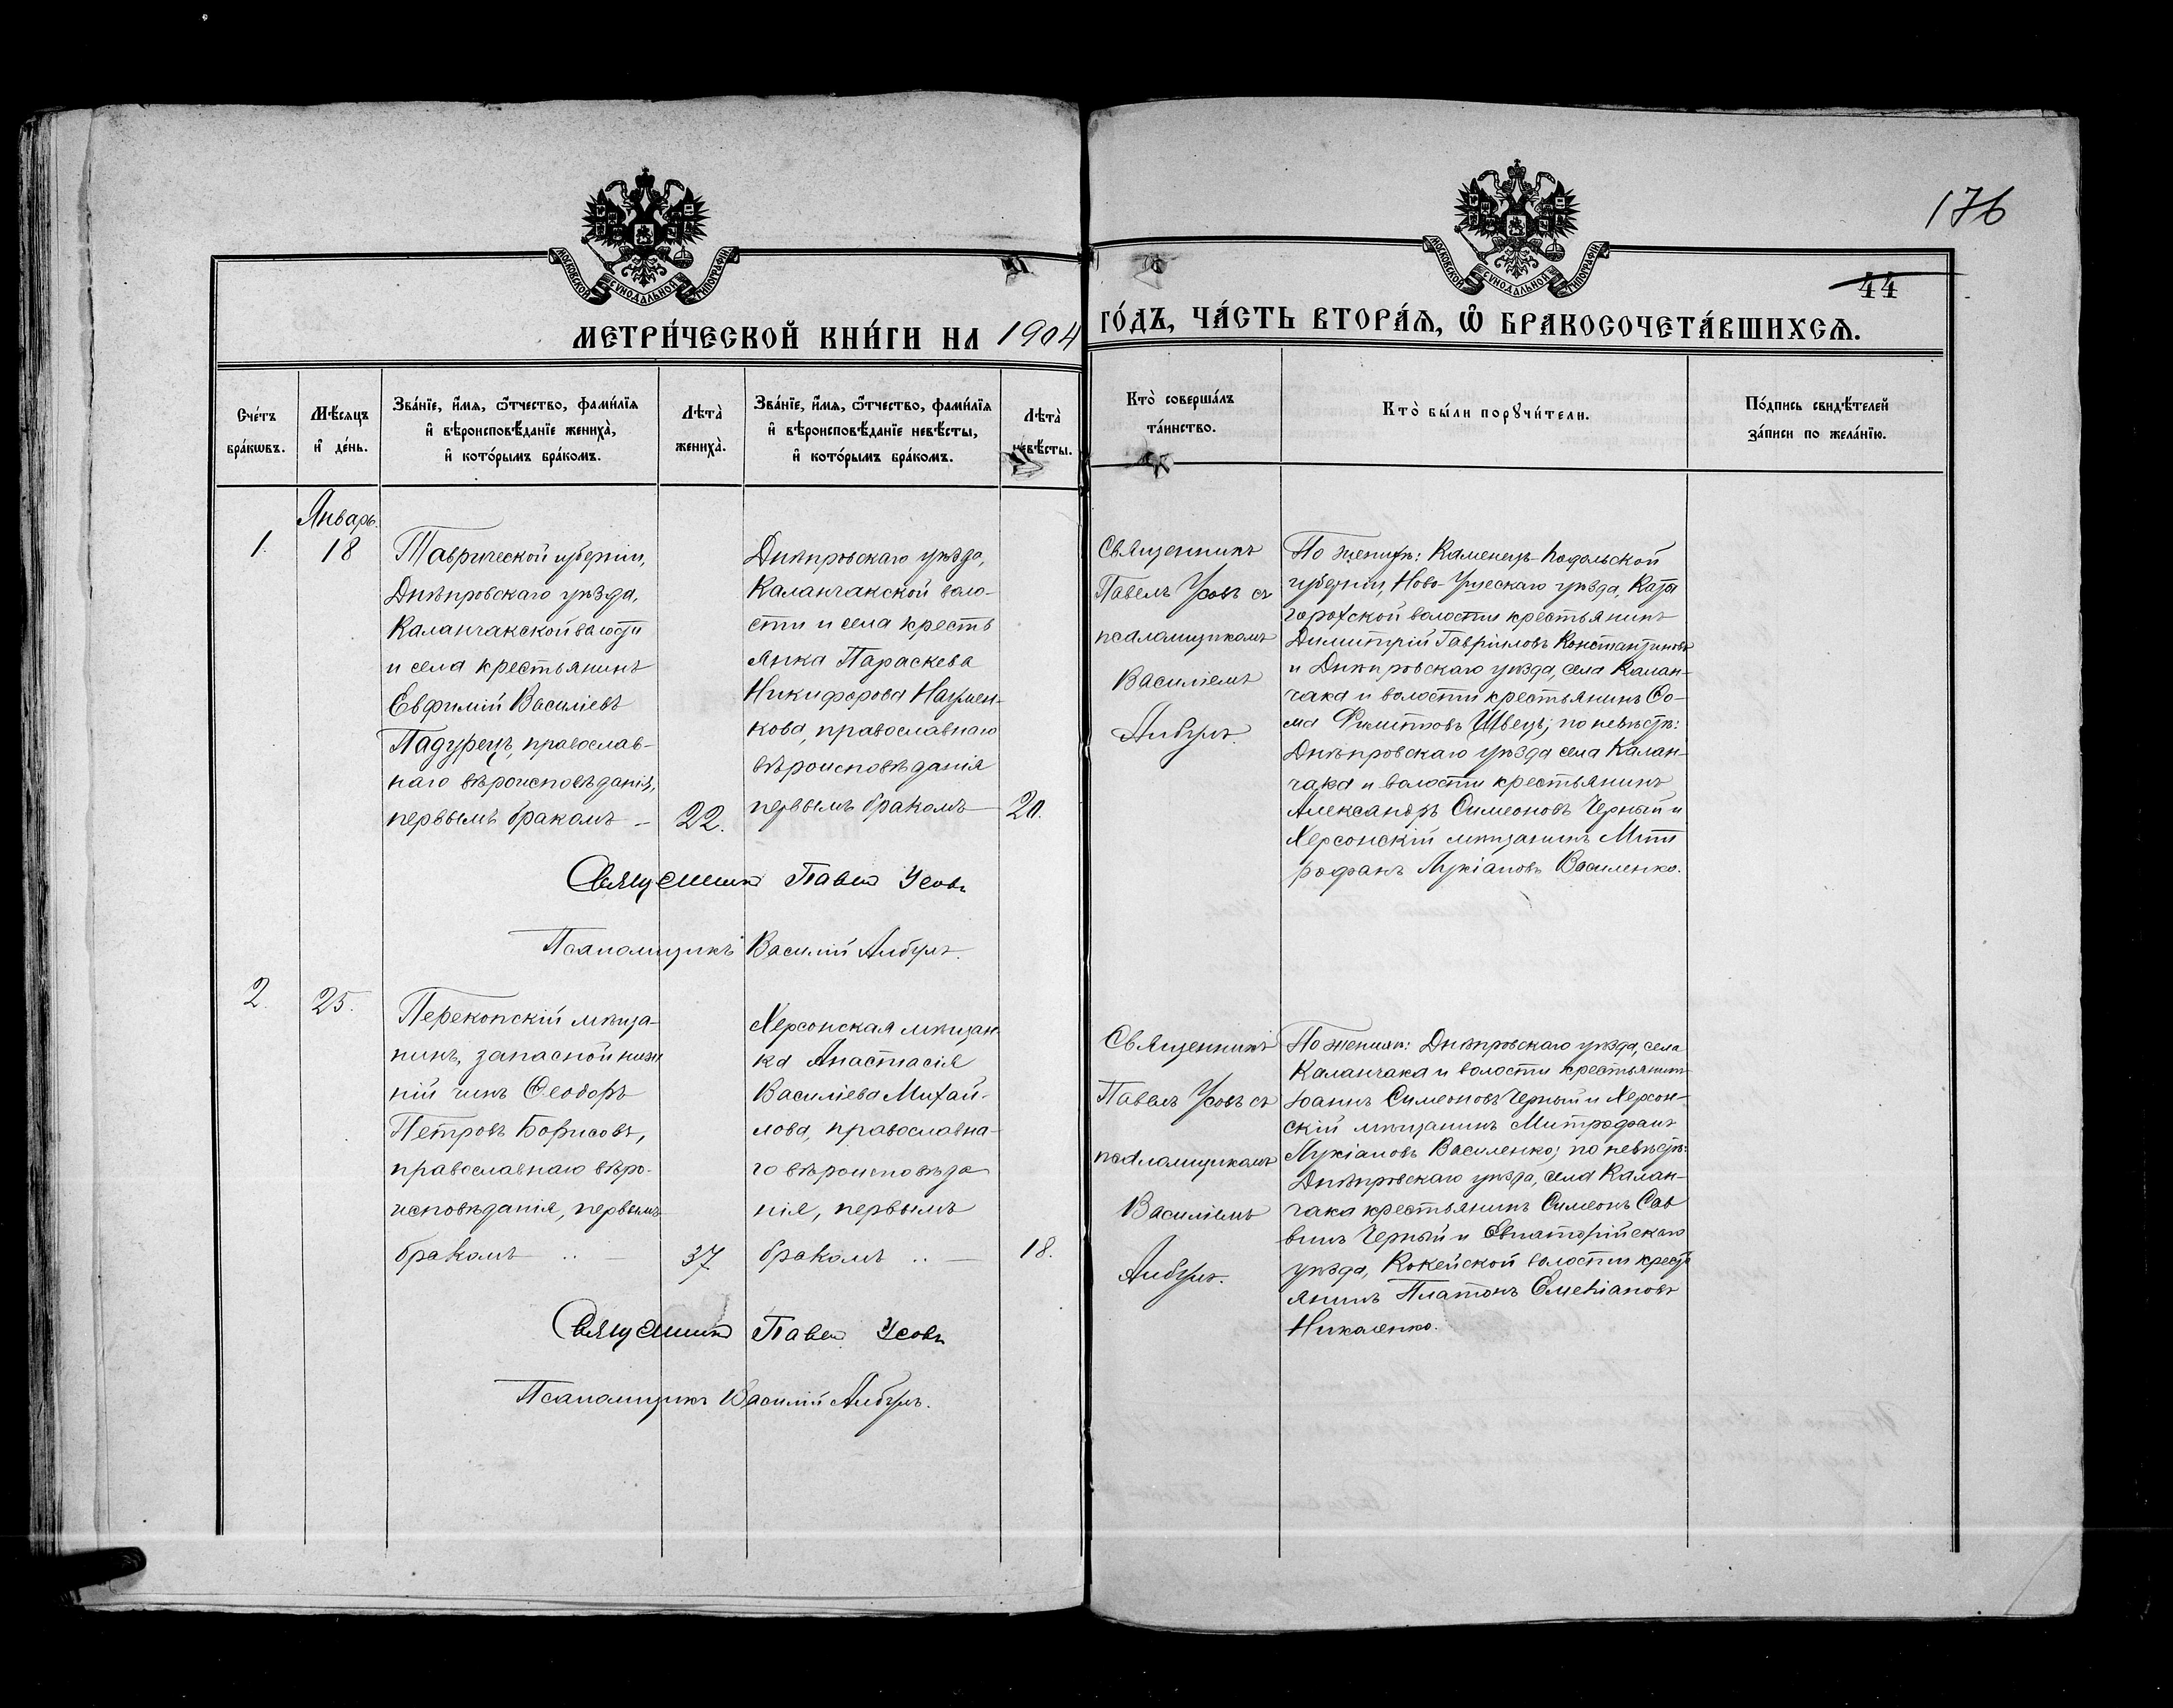 176
44
МОСКОВСКОЙ СѴНОДАЛЬНОЙ ТИПОГРАФІИ
МОСКОВСКОЙ СѴНОДАЛЬНОЙ ТИПОГРАФІИ
МЕТРИ́ЧЕСКОЙ КНИ́ГИ НА 1904 ГО́ДЪ, ЧА́СТЬ ВТОРА́Ѧ, Ѽ БРАКОСОЧЕТА́ВШИХСѦ.
Сче́тъ
бра́кѡвъ.
Мѣ́сяцъ
и҆ де́нь.
Зва́нїе, и҆́мѧ, ѻ҆́тчество, фами́лїѧ
и҆ вѣроисповѣ́данїе жениха̀,
и҆ кото́рымъ бра́комъ.
Лѣта̀
жениха̀.
Зва́нїе, и҆́мѧ, ѻ҆́тчество, фами́лїѧ
и҆ вѣроисповѣ́данїе невѣ́сты,
и҆ кото́рымъ бра́комъ.
Лѣта̀
невѣ́сты.
Кто̀ соверша́лъ
та́инство.
Кто̀ бы́ли порꙋчи́тели.
По́дпись свидѣ́телей
за́писи по жела́нїю.
Январь.
1.
18
Таврической губерніи,
Днѣпровскаго уѣзда,
Каланчакской волости
и села крестьянинъ
Евфимій Василіевъ
Падурецъ, православ-
наго вѣроисповѣданія,
первымъ бракомъ —
22.
Днѣпровскаго уѣзда,
Каланчакской воло-
сти и села кресть
янка Параскева
Никифорова Науmен-
кова, православнаго
вѣроисповѣданія
первымъ бракомъ —
20.
Священникъ
Павелъ Усовъ съ
псаломщикомъ
Василіемъ
По женихѣ: Каменецъ-Подольской
губерніи, Ново-Ушескаго уѣзда,
волости крестьянинъ
Димитрій Гавріиловъ Константиновъ
и Днѣпровскаго уѣзда, села Калан-
чака и волости крестьянинъ Ѳо-
ма Филиповъ Швецъ; по невѣстѣ:
Днѣпровскаго уѣзда села Калан-
чака и волости крестьянинъ
Александръ Симеоновъ Черный и
Херсонскій мѣщанинъ Мит
рофанъ Лукіановъ Василенко.
Священникъ Павелъ Усовъ
Псаломщикъ Василій
2.
25.
Перекопскій мѣща-
нинъ, запасной ниж
ній чинъ Ѳеодоръ
Петровъ Борисовъ,
православнаго вѣро-
исповѣданія, первымъ
бракомъ .. —
37.
Херсонская мѣщан-
ка Анастасія
Василіева Михай-
лова, православна-
го вѣроисповѣда
нія, первымъ
бракомъ .. —
18.
Священникъ
Павелъ Усовъ съ
псаломщикомъ
Василіемъ
По женихѣ: Днѣпровскаго уѣзда, села
Каланчака и волости крестьянинъ
Іоаннъ Симеоновъ Черный и Херсон-
скій мѣщанинъ Митрофанъ
Лукіановъ Василенко; по невѣстѣ:
Днѣпровскаго уѣзда, села Калан-
чака крестьянинъ Симеонъ Сав
винъ Черный и Евпаторійскаго
уѣзда, волости крестья
янинъ Платонъ Емеліановъ
Николенко.
Священникъ Павелъ Усовъ
Псаломщикъ Василій